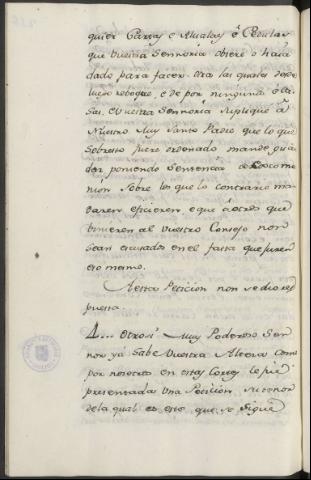 quier Cartas e Alvalas é Cedulas
que Vuestra Sennoria obiere o haia
dado para facer. Cra las quales desde
luego reboque, e de por ningunas e ca-
sas, e Vuestra Sennoria suplique à
Nuestro Muy Santo Padre que lo que
sobresto fuere ordenado mande guar-
dar poniendo Sentencia de Excomu-
nion sobre los que lo contrario man-
daren eficieren e que á otros que
binieren al Vuestro Consejo non
sean escusados en el facer que juren
eso mesmo.
A esta Peticion non se dio res-
puesta.
4... Otrosi Muy Poderoso Sen-
nor ya sabe Vuestra Alteza como
por nosotros en estas Cortes le fue
presentada una Peticion su tenor
de la qual es este que se sigue